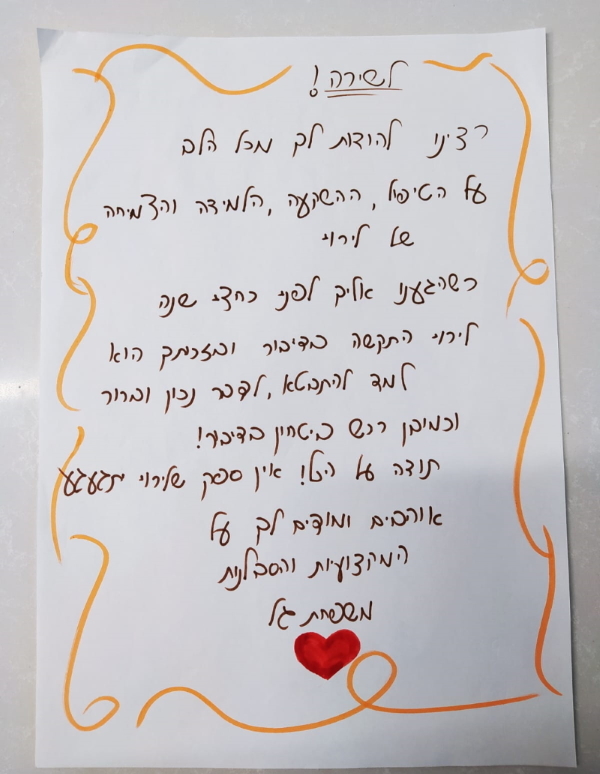 לשירה!
רצינו להודות לך מכל הלב
על הטיפול, ההשקעה, הלמידה והצמיחה
של לירוי
כשהגענו אליך לפני כחצי שנה
לירוי התקשה בדיבור ובעזרתך הוא
למד להתבטא, לדבר נכון וברור
וכמובן רכש ביטחון בדיבור!
תודה על הכל! אין ספק שלירוי יתגעגע
אוהבים ומודים לך על
המקצועיות והסבלנות
משפחת גל